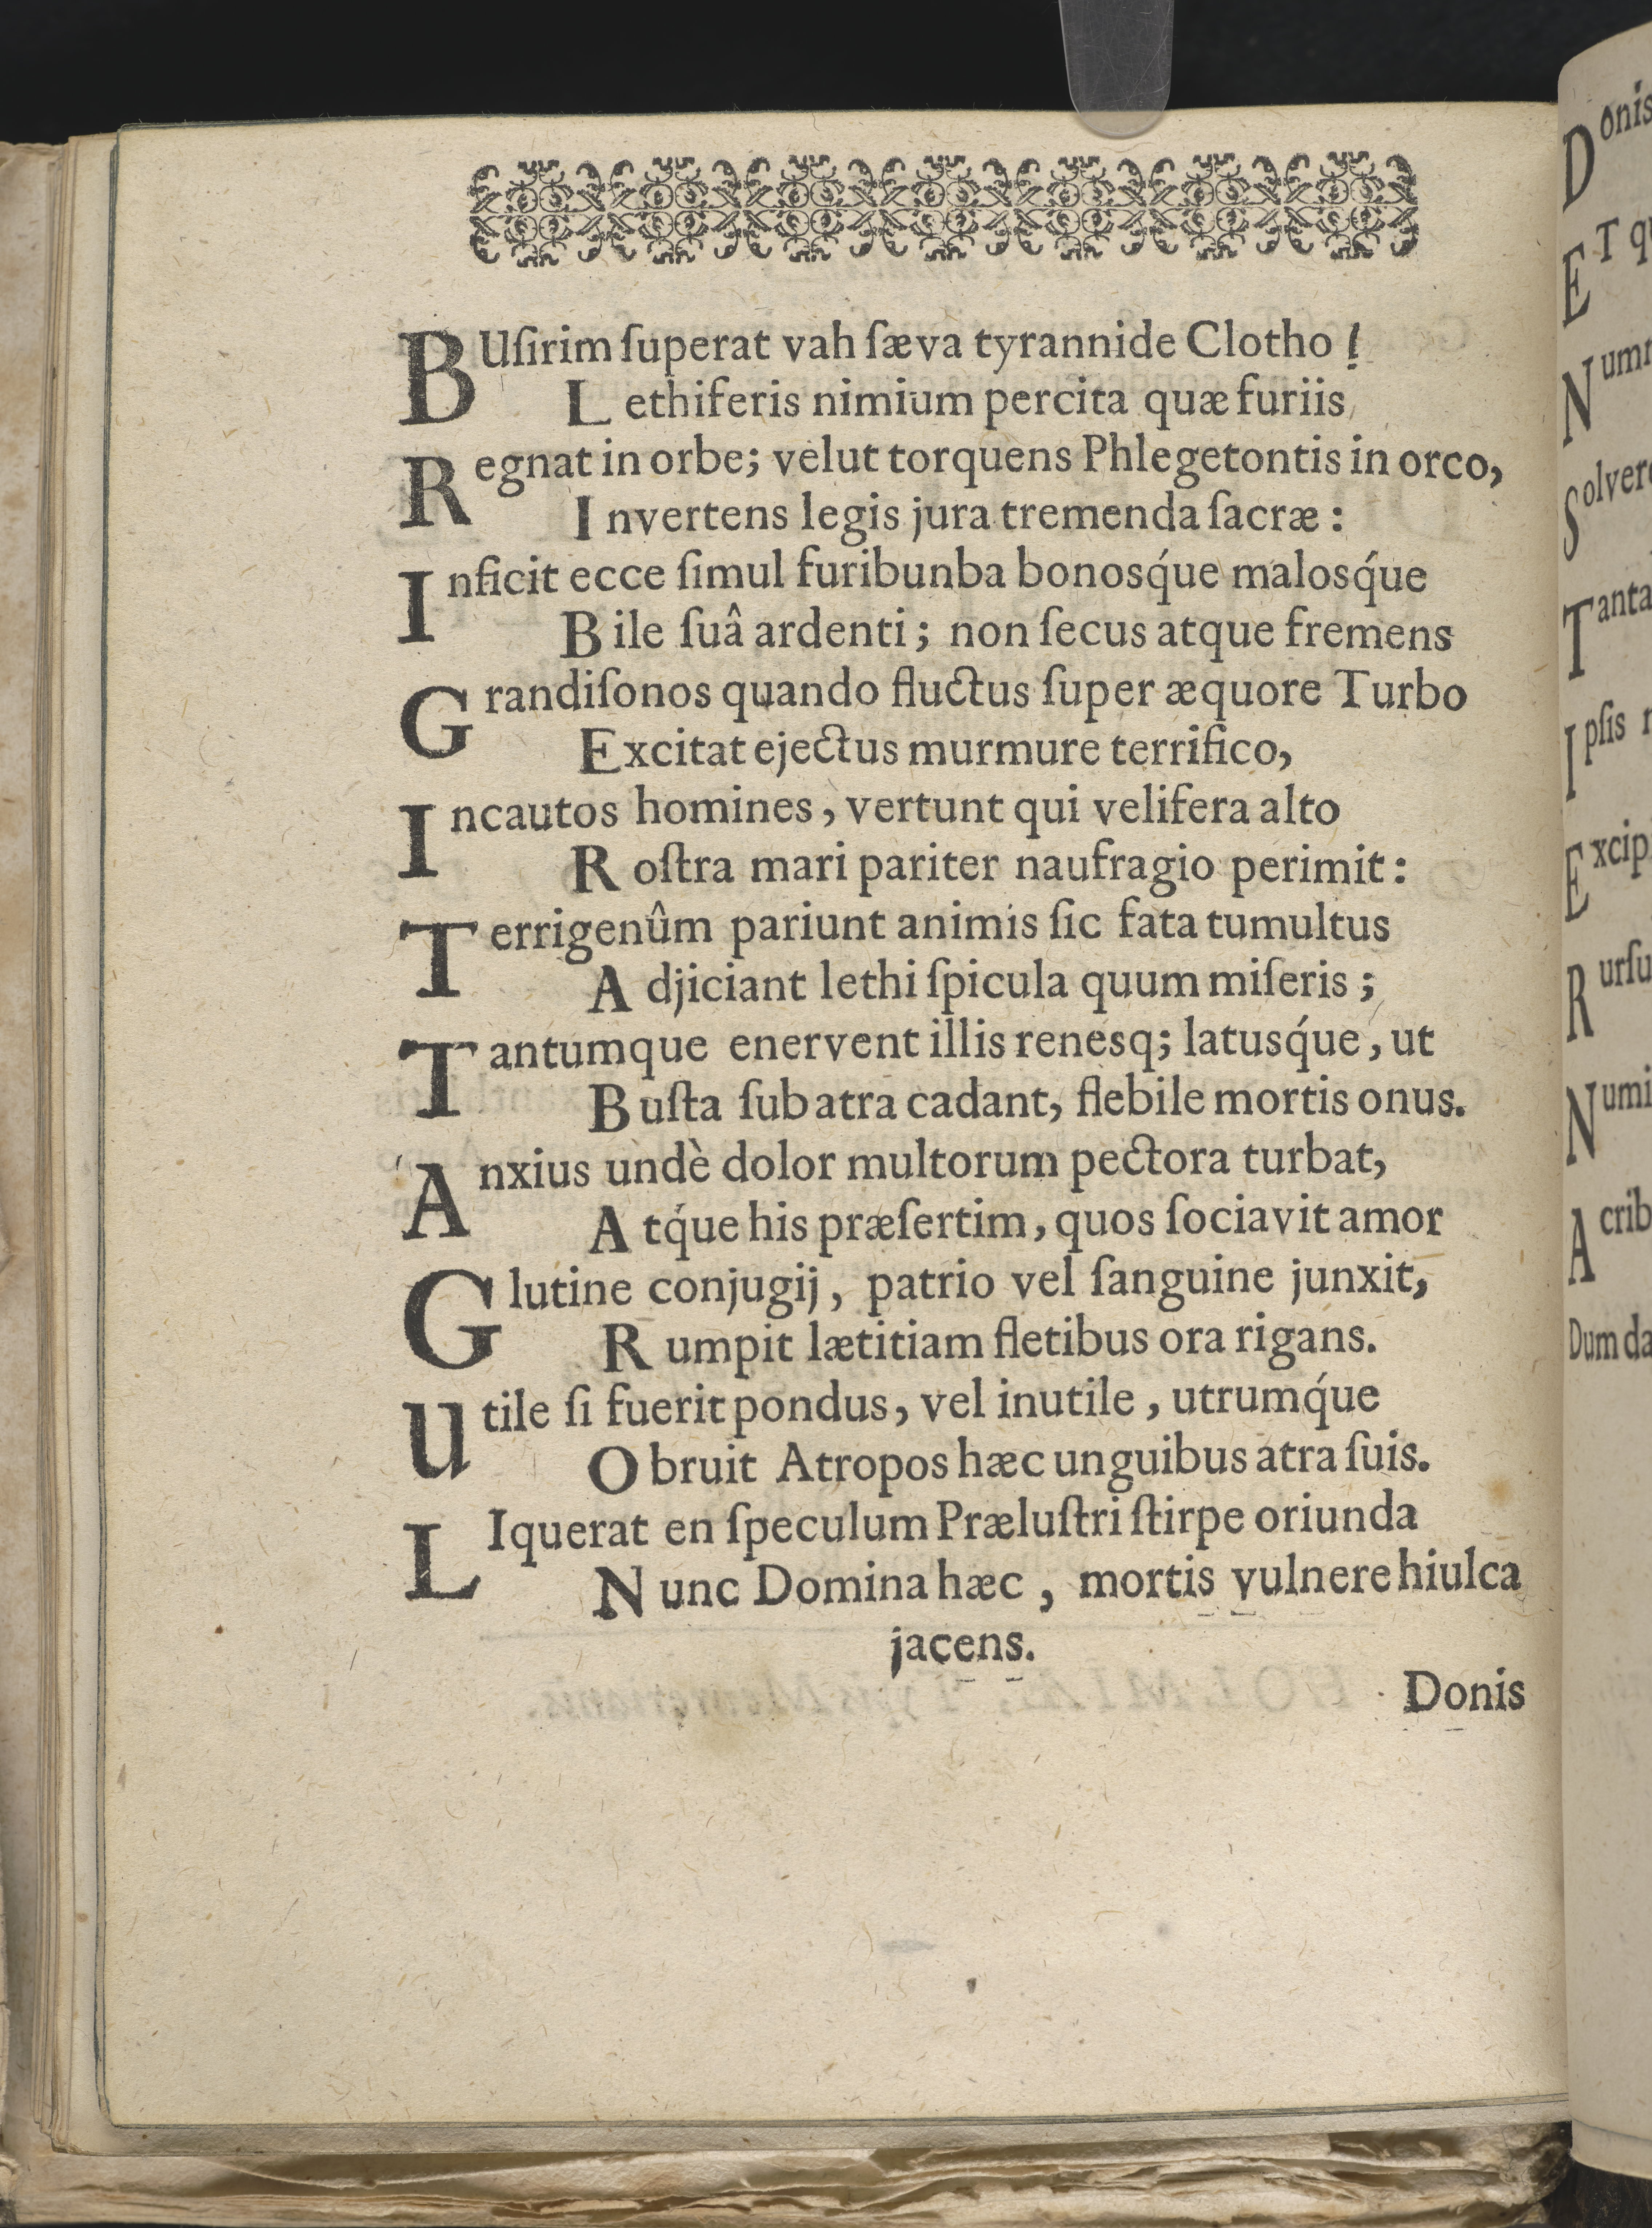 BUſirim ſuperat vah ſæva tyrannide Clotho!
Lethiferis nimium percita quæ furiis
Regnat in orbe; velut torquens Phlegetontis in orco,
Invertens legis jura tremenda ſacræ:
Inficit ecce ſimul furibunba bonosq́ue malosq́ue
Bile ſuâ ardenti; non ſecus atque fremens
Grandiſonos quando fluctus ſuper æquore Turbo
Excitat ejectus murmure terrifico,
Incautos homines, vertunt qui velifera alto
Roſtra mari pariter naufragio perimit:
Terrigenûm pariunt animis ſic fata tumultus
Adjiciant lethi ſpicula quum miſeris;
Tantumque enervent illis renesq; latusq́ue, ut
Buſta ſub atra cadant, flebile mortis onus.
Anxius undè dolor multorum pectora turbat,
Atq́ue his præſertim, quos ſociavit amor
Glutine conjugij, patrio vel ſanguine junxit,
Rumpit lætitiam fletibus ora rigans.
utile ſi fuerit pondus, vel inutile, utrumq́ue
Obruit Atropos hæc unguibus atra ſuis.
LIquerat en ſpeculum Præluſtri ſtirpe oriunda
Nunc Domina hæc, mortis vulnere hiulca
jacens.
Donis
Donis
ET
Solvere
Dum da